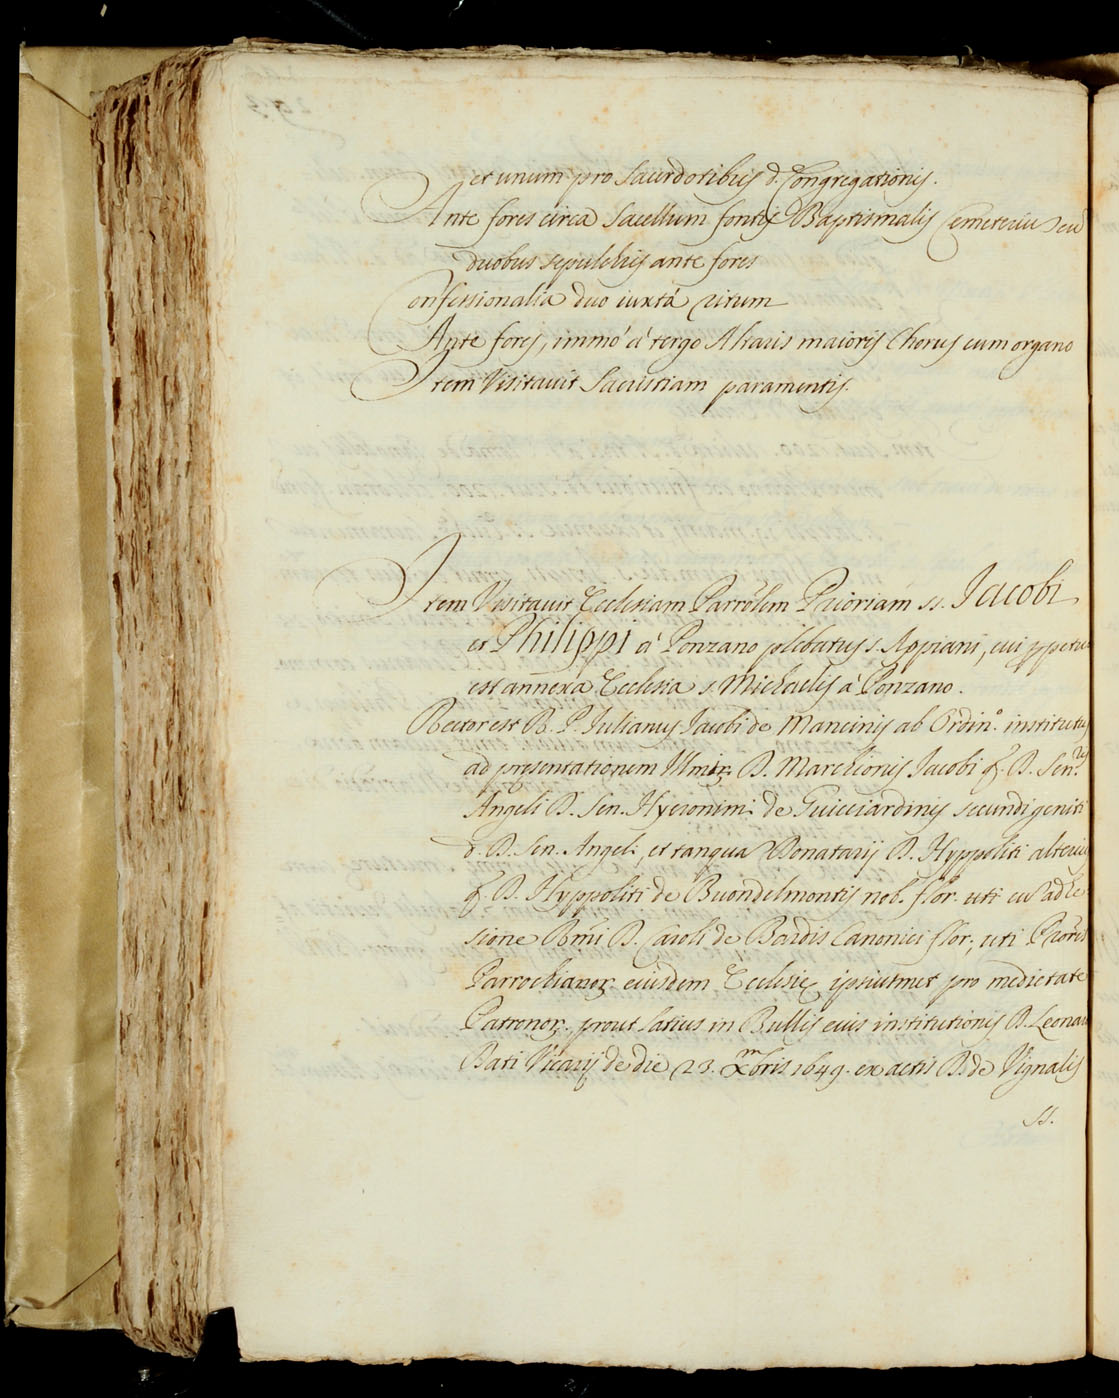 et unum pro Sacerdotibus d. Congregationis.
Ante fores circa Sacellum fontis Baptismalis Cemeteriu seu
duobus sepulchris ante fores
Confessionalia duo iuxtà ritum
Ante fores, immò à tergo Altaris maioris Chorus cum organo
Item Visitavit Sacristiam paramentis.
Item Visitavit Ecclesiam Parrolem Prioriam ss. Jacobi
et Philippi à Ponzano plebatus s. Appiani, cui ppetuo
est annexa Ecclesia s. Michaelis à Ponzano.
Rector est R. P. Julianus Jacobi de Mancinis ab Ordin.° institutus
ad presentationem Illmor. D. Marchionis Jacobi q. D. Sen.ris
Angeli D. Sen. Hyeronimi de Guicciardinis secundi geniti
d. D. Sen. Angeli, et tanqua Donatarij D. Hyppoliti alterius
q. D. Hyppoliti de Buondelmontis nob. flor. uti cu adhe
sione Rmi D. Caroli de Bardis Canonici flor., uti Prioris
Parrochianor. eiusdem Ecclesie ipsiusmet pro medietate
Patronor. prout latius in Bullis euis institutionis D. Leonar
Dati Vicarij de die 23. Xmbris 1649. ex actis D. de Vignalis
ss.